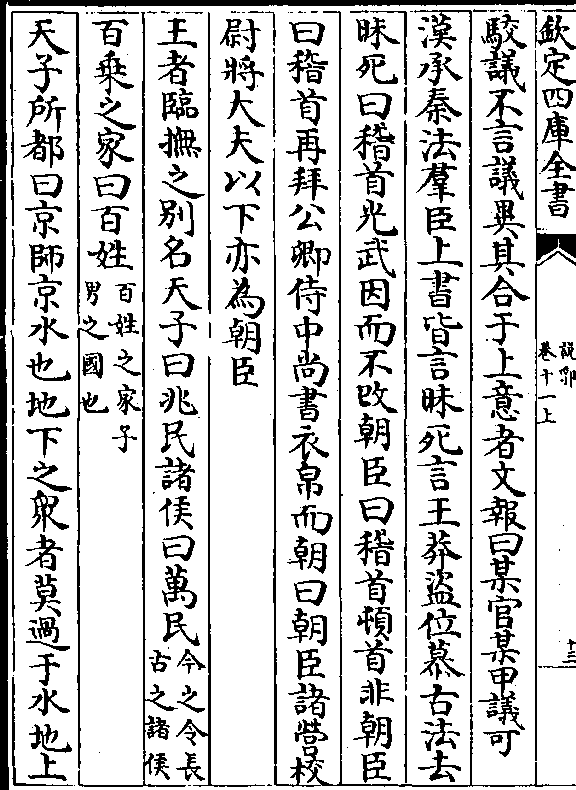 欽定四庫全書
說郛
卷十一上
十三
駮議不言議異其合于上意者文報曰某官某甲議可
漢承秦法羣臣上書皆言昧死言王莽盜位慕古法去
昧死曰稽首光武因而不改朝臣曰稽首頓首非朝臣
曰稽首再拜公卿侍中尚書衣帛而朝曰朝臣諸營校
尉將大夫以下亦為朝臣
王者臨撫之别名天子曰兆民諸侯曰萬民今之令長古之諸侯
百乗之家曰百姓百姓之家子男之國也
天子所都曰京師京水也地下之衆者莫過于水地上